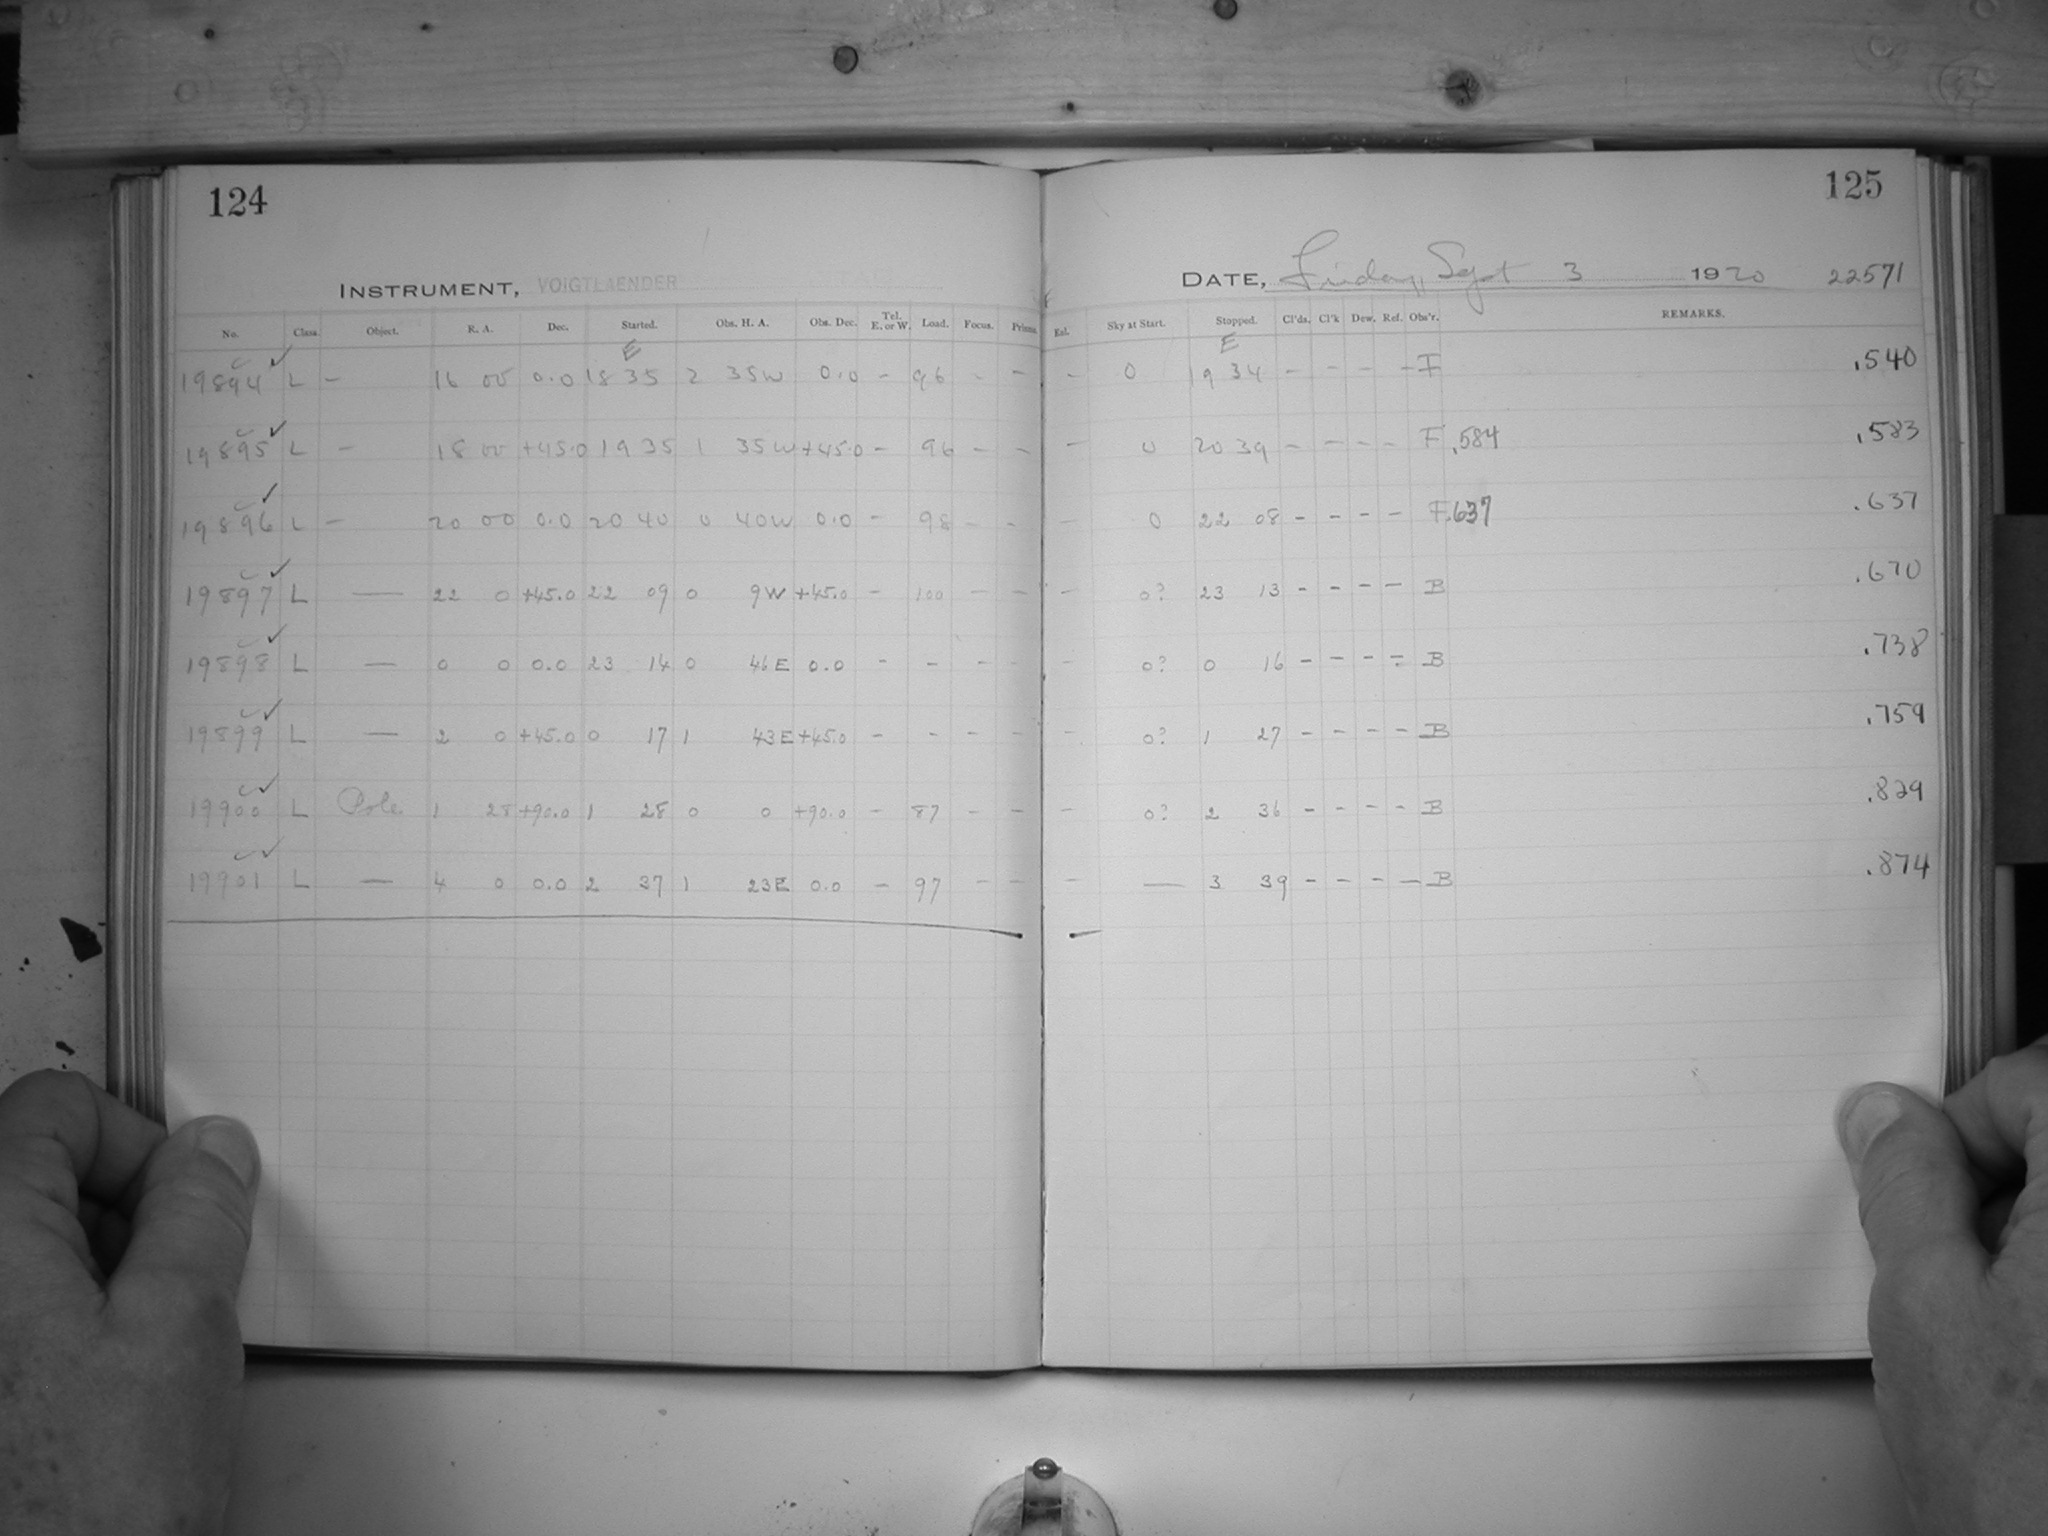 124
INSTRUMENT, VOIGTLAENDER
No. Class. Object. R. A. Dec. Started. Obs. H. A. Obs. Dec. Tel. E. or W. Load. Focus. Prisms.
E
19894 L — 16 00 0.0 18 35 2 35W 0.0 — 96 — —
19895 L — 18 00 +45.0 19 35 1 35W +45.0 — 96 — —
19896 L — 20 00 0.0 20 40 0 40W 0.0 — 98 — —
19897 L — 22 0 +45.0 22 09 0 9W +45.0 — 100 — —
19898 L — 0 0 0.0 23 14 0 46E 0.0 — — — —
19899 L — 2 0 +45.0 0 17 1 43E +45.0 — — — —
19900 L Pole 1 28 +90.0 1 28 0 0 +90.0 — 87 — —
19901 L — 4 0 0.0 2 37 1 23E 0.0 — 97 — —
125
DATE, Friday, Sept 3 1920 22571
Sky at Start. Stopped. Cl'ds. Cl'k Dew. Ref. Obs'r. REMARKS.
E
— 0 19 34 — — — — F .540
— 0 20 39 — — — — F .584 .583
— 0 22 08 — — — — F .637 .637
— 0? 23 13 — — — — B .670
— 0? 0 16 — — — — B .738
— 0? 1 27 — — — — B .759
— 0? 2 36 — — — — B .829
— — 3 39 — — — — B .874